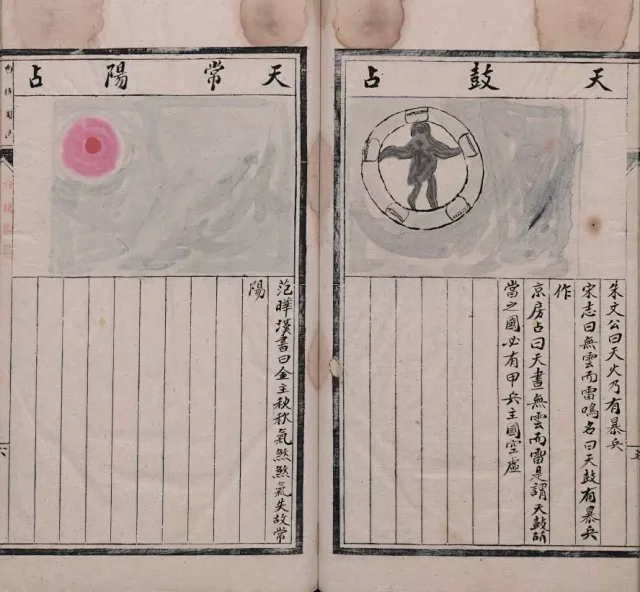 天鼓占
朱文公曰天火乃有暴兵
宋志曰無雲而雷鳴名曰天鼓有暴兵
作
京房占曰天晝無雲而雷是謂天鼓所
當之國必有甲兵主國空虛
天常陽占
范曄漢書曰金主秋秋氣煞煞氣失故常
陽
六